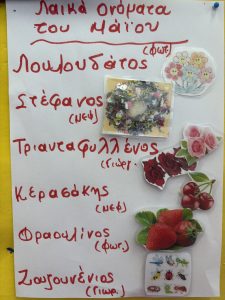 Λαϊκά ονόματα
του Μάϊου
(φωτ)
Λουλουδάτος
Στέφανος
(νεφ)
Τριανταφυλλένος
(Γιωργ.)
Κερασάκης
(νεφ)
Φραουλίνος
(φωτ.)
Ζουζουνένιος
(Γιωργ.)